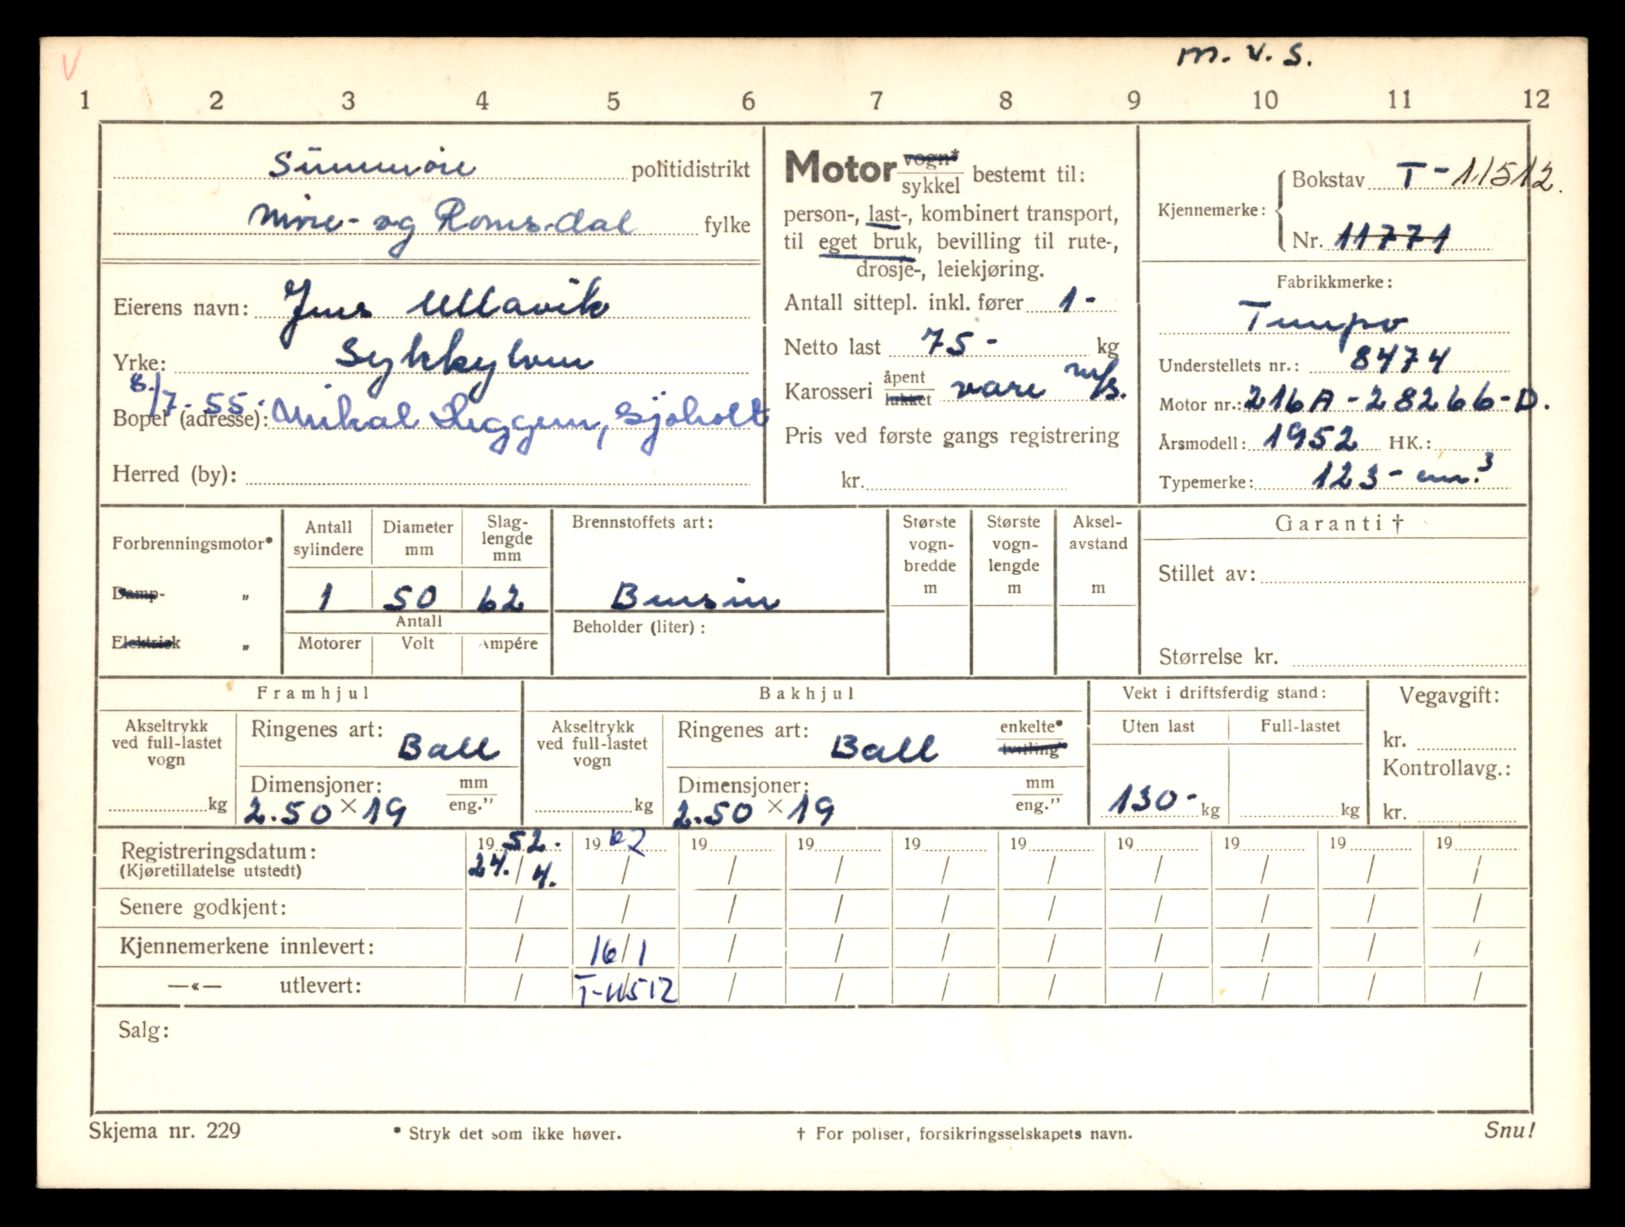 V
m. v. s.
1 2 3 4 5 6 7 8 9 10 11 12
Sunnmøre politidistrikt
Møre- og Romsdal fylke
Eierens navn: Jens Ullavik
Yrke: Sykkylven
8./7-55.
Bopel (adresse): Mikal Skeggem, Sjøholt
Herred (by):
Motor vogn*
sykkel bestemt til:
person-, last-, kombinert transport,
til eget bruk, bevilling til rute-,
drosje-, leiekjøring.
Antall sittepl. inkl. fører 1-
Netto last 75- kg
Karosseri åpent
lukket vare m/s.
Pris ved første gangs registrering
kr.
Kjennemerke: Bokstav T-11512.
Nr. 11771
Fabrikkmerke:
Tempo
Understellets nr.: 8474
Motor nr.: 216A-28266-D.
Årsmodell: 1952 HK.:
Typemerke: 123- cm.³
Forbrenningsmotor*
Damp- „
Elektrisk „
Antall sylindere
Diameter mm
Slag-lengde mm
1 50 62
Antall
Motorer Volt Ampére
Brennstoffets art:
Bensin
Beholder (liter):
Største vogn-bredde m
Største vogn-lengde m
Aksel-avstand m
Garanti †
Stillet av:
Størrelse kr.
Framhjul
Akseltrykk ved full-lastet vogn
kg
Ringenes art: Ball
Dimensjoner: mm
2.50 × 19 eng.”
Bakhjul
Akseltrykk ved full-lastet vogn
kg
Ringenes art: Ball enkelte*
tvilling*
Dimensjoner: mm
2.50 × 19 eng.”
Vekt i driftsferdig stand:
Uten last Full-lastet
130- kg kg
Vegavgift:
kr.
Kontrollavg.:
kr.
Registreringsdatum: 19 52. 19 62 19 19 19 19 19 19 19 19
(Kjøretillatelse utstedt) 24./4. / / / / / / / / /
Senere godkjent: / / / / / / / / / /
Kjennemerkene innlevert: / 16/1 / / / / / / / /
—«— utlevert: / T-11512 / / / / / / / /
Salg:
Skjema nr. 229 * Stryk det som ikke høver. † For poliser, forsikringsselskapets navn. Snu!